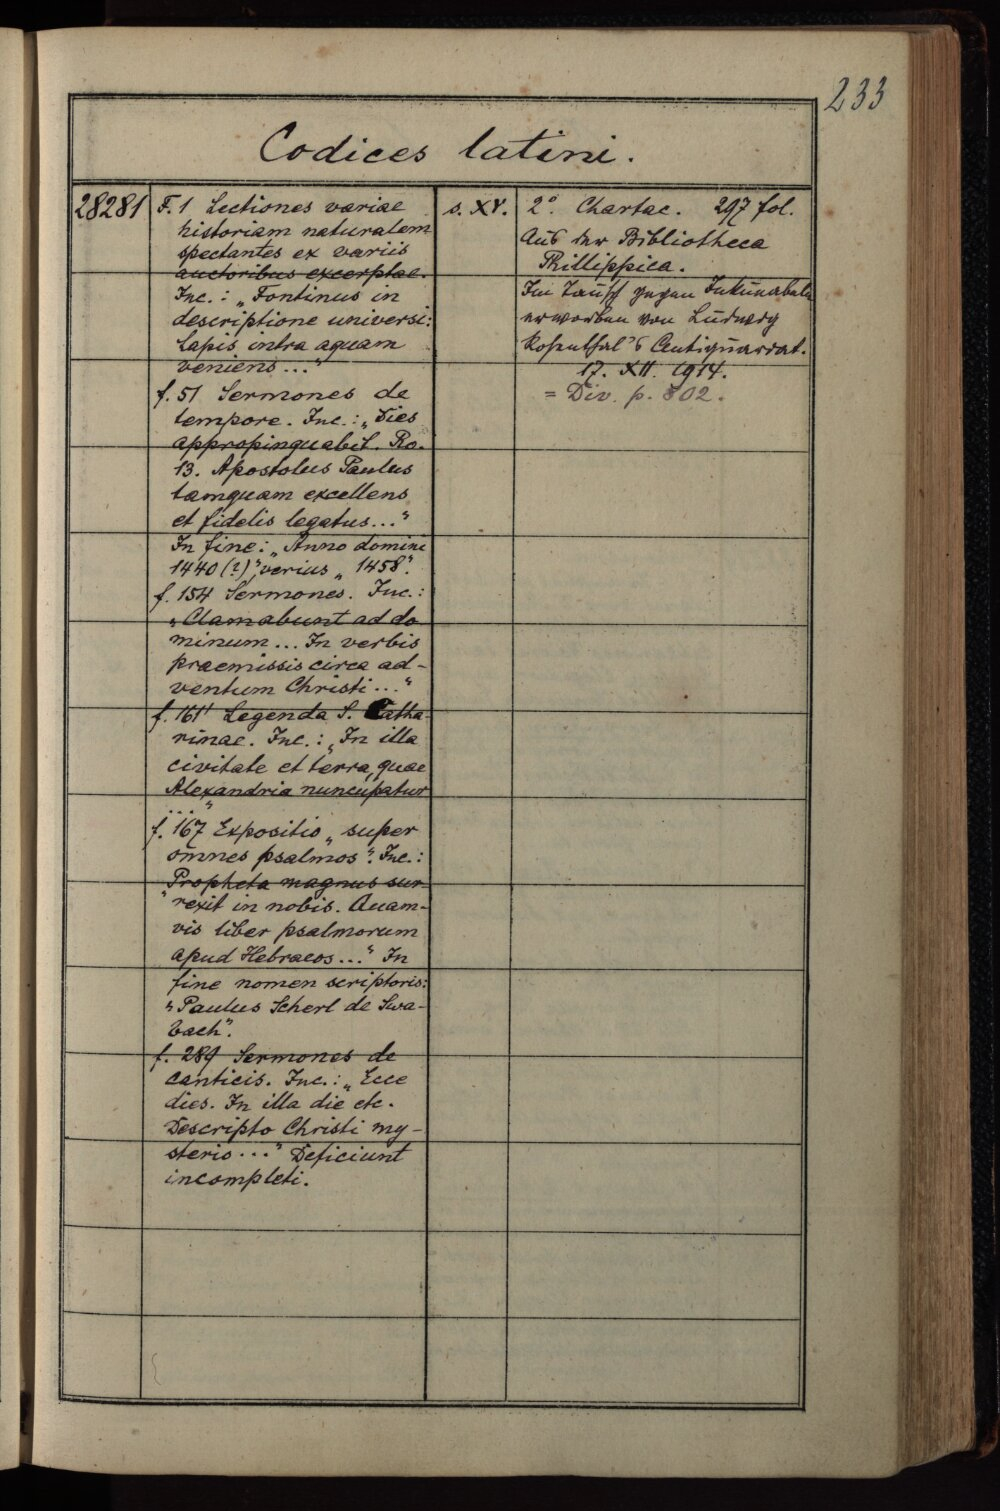 233
Codices latini.
28281
F. 1 Lectiones variae
historiam naturalem
spectantes ex variis
auctoribus excerptae.
Inc.: „Fontinus in
descriptione universi:
Lapis intra aquam
veniens..."
f. 51 Sermones de
tempore. Inc.: „Dies
appropinquabit. Ro.
13. Apostolus Paulus
tamquam excellens
et fidelis legatus..."
In fine: „Anno domini
1440 (?)", verius „1458".
f. 154 Sermones. Inc.:
„Clamabunt ad do
minum... In verbis
praemissis circa ad-
ventum Christi..."
f. 161' Legenda S. Catha-
rinae. Inc.: „In illa
civitate et terra, quae
Alexandria nuncupatur
..."
f. 167 Expositio „super
omnes psalmos". Inc.:
„Propheta magnus sur-
rexit in nobis. Quam-
vis liber psalmorum
apud Hebraeos..." In
fine nomen scriptoris:
„Paulus Scherl de Swa-
bach".
f. 289 Sermones de
canticis. Inc.: „Ecce
dies. In illa die etc.
Descripto Christi my-
sterio..." Deficiunt
incompleti.
s. XV.
2°. Chartac. 297 fol.
Aus der Bibliotheca
Phillippica.
Im Tausch gegen Inkunabeln
erworben von Ludwig
Rosenthal's Antiquariat.
17. XII. 1914.
= Div. p. 802.